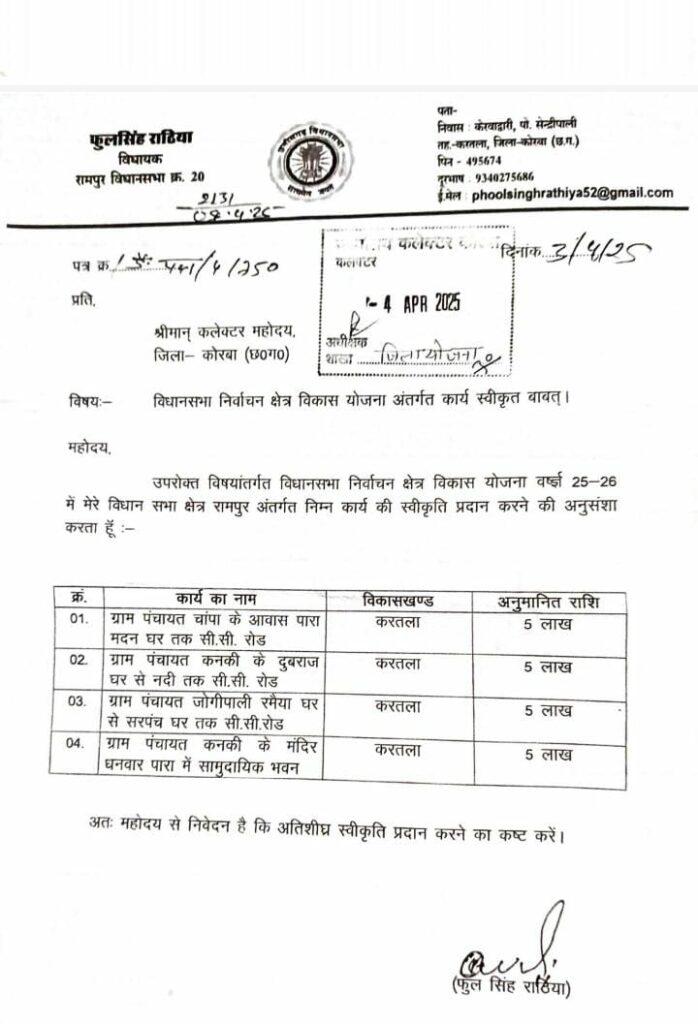 फुलसिंह राठिया
विधायक
रामपुर विधानसभा क्र. 20
2131
08.4.25
छत्तीसगढ़ विधानसभा
सत्यमेव जयते
पता-
निवास : केरवाद्वारी, पो. सेन्द्रीपाली
तह.-करतला, जिला-कोरबा (छ.ग.)
पिन - 495674
दूरभाष . 9340275686
ई.मेल : phoolsinghrathiya52@gmail.com
पत्र क्र /4/250
दिनांक 3/4/25
कलेक्टर
कलक्टर
- 4 APR 2025
अधीक्षक
शाखा जिला योजना
प्रति,
श्रीमान् कलेक्टर महोदय,
जिला– कोरबा (छ0ग0)
विषयः– विधानसभा निर्वाचन क्षेत्र विकास योजना अंतर्गत कार्य स्वीकृत बाबत्।
महोदय,
उपरोक्त विषयांतर्गत विधानसभा निर्वाचन क्षेत्र विकास योजना वर्ष्ज्ञ 25–26
में मेरे विधान सभा क्षेत्र रामपुर अंतर्गत निम्न कार्य की स्वीकृति प्रदान करने की अनुसंशा
करता हूँ :–
क्रं. कार्य का नाम विकासखण्ड अनुमानित राशि
01. ग्राम पंचायत चांपा के आवास पारा करतला 5 लाख
मदन घर तक सी.सी. रोड
02. ग्राम पंचायत कनकी के दुबराज करतला 5 लाख
घर से नदी तक सी.सी. रोड
03. ग्राम पंचायत जोगीपाली रमैया घर करतला 5 लाख
से सरपंच घर तक सी.सी.रोड
04. ग्राम पंचायत कनकी के मंदिर करतला 5 लाख
धनवार पारा में सामुदायिक भवन
अतः महोदय से निवेदन है कि अतिशीघ्र स्वीकृति प्रदान करने का कष्ट करें।
(फुल सिंह राठिया)